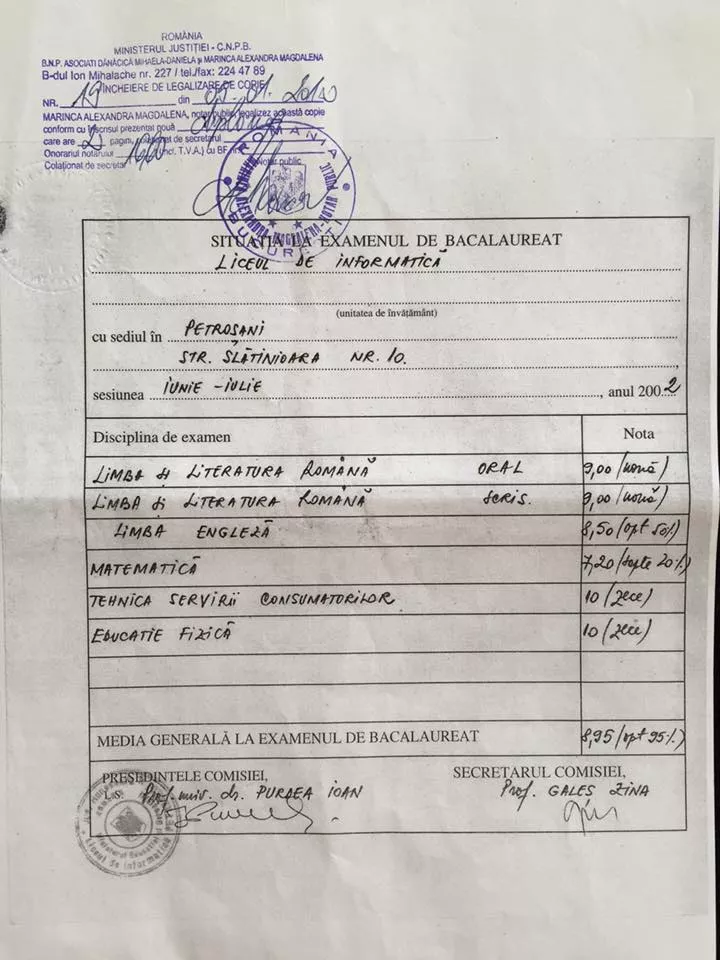 ROMÂNIA
MINISTERUL JUSTIŢIEI - C.N.P.B.
B.N.P. ASOCIATI DĂNĂCICĂ MIHAELA-DANIELA şi MARINCA ALEXANDRA MAGDALENA
B-dul Ion Mihalache nr. 227 / tel./fax: 224 47 89
ÎNCHEIERE DE LEGALIZARE DE COPIE
NR. 19 din
MARINCA ALEXANDRA MAGDALENA, notar public, legalizez această copie
conform cu înscrisul prezentat nouă diploma
care are 2 pagini, de secretarul
Onorariul notarului incl. T.V.A.) cu BF
Colaţionat de secretar
Notar public
ROMANIA
ALEXANDRA MAGDALENA-NOTAR PUBLIC
BUCUREŞTI
SITUAŢIA LA EXAMENUL DE BACALAUREAT
LICEUL DE INFORMATICĂ
(unitatea de învăţământ)
cu sediul în PETROŞANI
STR. SLĂTINIOARA NR. 10.
sesiunea IUNIE - IULIE, anul 2002
Disciplina de examen Nota
LIMBA şi LITERATURA ROMÂNĂ ORAL 9,00 (nouă)
LIMBA şi LITERATURA ROMÂNĂ SCRIS. 9,00 (nouă)
LIMBA ENGLEZĂ 8,50 (opt 50%)
MATEMATICĂ 7,20 (şapte 20%)
TEHNICA SERVIRII CONSUMATORILOR 10 (zece)
EDUCATIE FIZICĂ 10 (zece)
MEDIA GENERALĂ LA EXAMENUL DE BACALAUREAT 8,95 (opt 95%)
PREŞEDINTELE COMISIEI, SECRETARUL COMISIEI,
L.S. Prof. univ. dr. PURDEA IOAN Prof. GALES ZINA